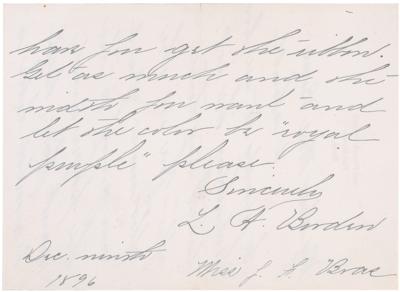 have you get the ribbon.
Get as much and the
width you want and
let the color be "royal
purple" please
Sincerely
L. A. Borden
Dec. ninth
1896
Miss J. A.